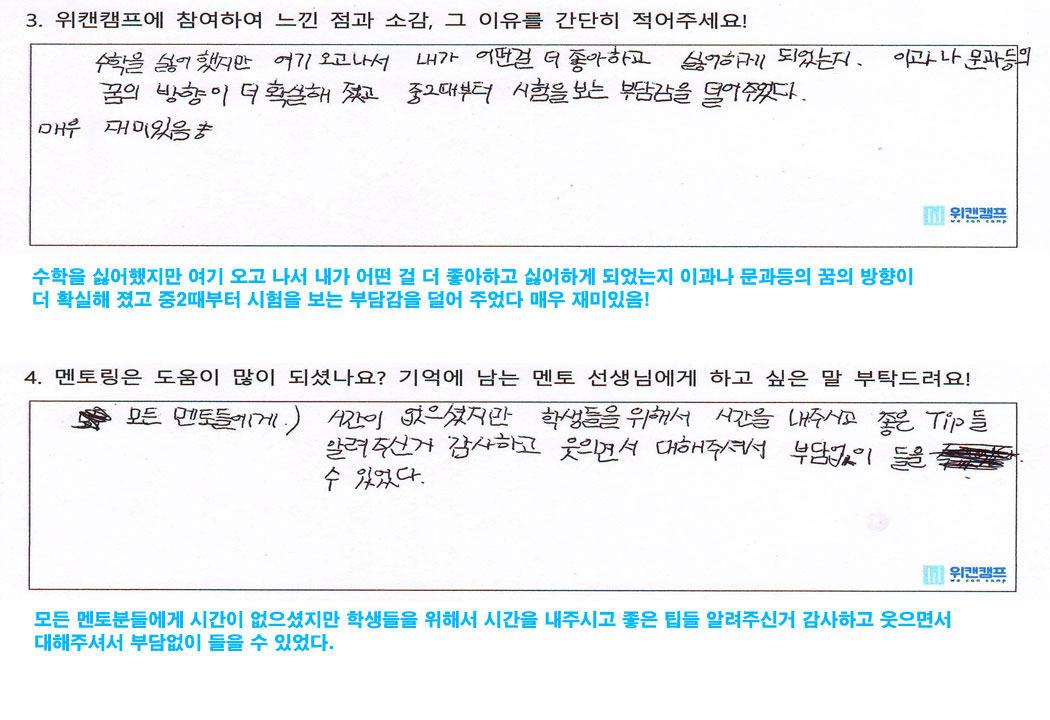 3. 위캔캠프에 참여하여 느낀 점과 소감, 그 이유를 간단히 적어주세요!
수학을 싫어 했지만 여기 오고나서 내가 어떤걸 더 좋아하고 싫어하게 되었는지. 이과나 문과등의
꿈의 방향이 더 확실해 졌고 중2때부터 시험을 보는 부담감을 덜어주었다.
매우 재미있음
위캔캠프
we can camp
수학을 싫어했지만 여기 오고 나서 내가 어떤 걸 더 좋아하고 싫어하게 되었는지 이과나 문과등의 꿈의 방향이
더 확실해 졌고 중2때부터 시험을 보는 부담감을 덜어 주었다 매우 재미있음!
4. 멘토링은 도움이 많이 되셨나요? 기억에 남는 멘토 선생님에게 하고 싶은 말 부탁드려요!
모든 멘토들에게.) 시간이 없으셨지만 학생들을 위해서 시간을 내주시고 좋은 Tip들
알려주신거 감사하고 웃으면서 대해주셔서 부담없이 들을
수 있었다.
위캔캠프
we can camp
모든 멘토분들에게 시간이 없으셨지만 학생들을 위해서 시간을 내주시고 좋은 팁들 알려주신거 감사하고 웃으면서
대해주셔서 부담없이 들을 수 있었다.